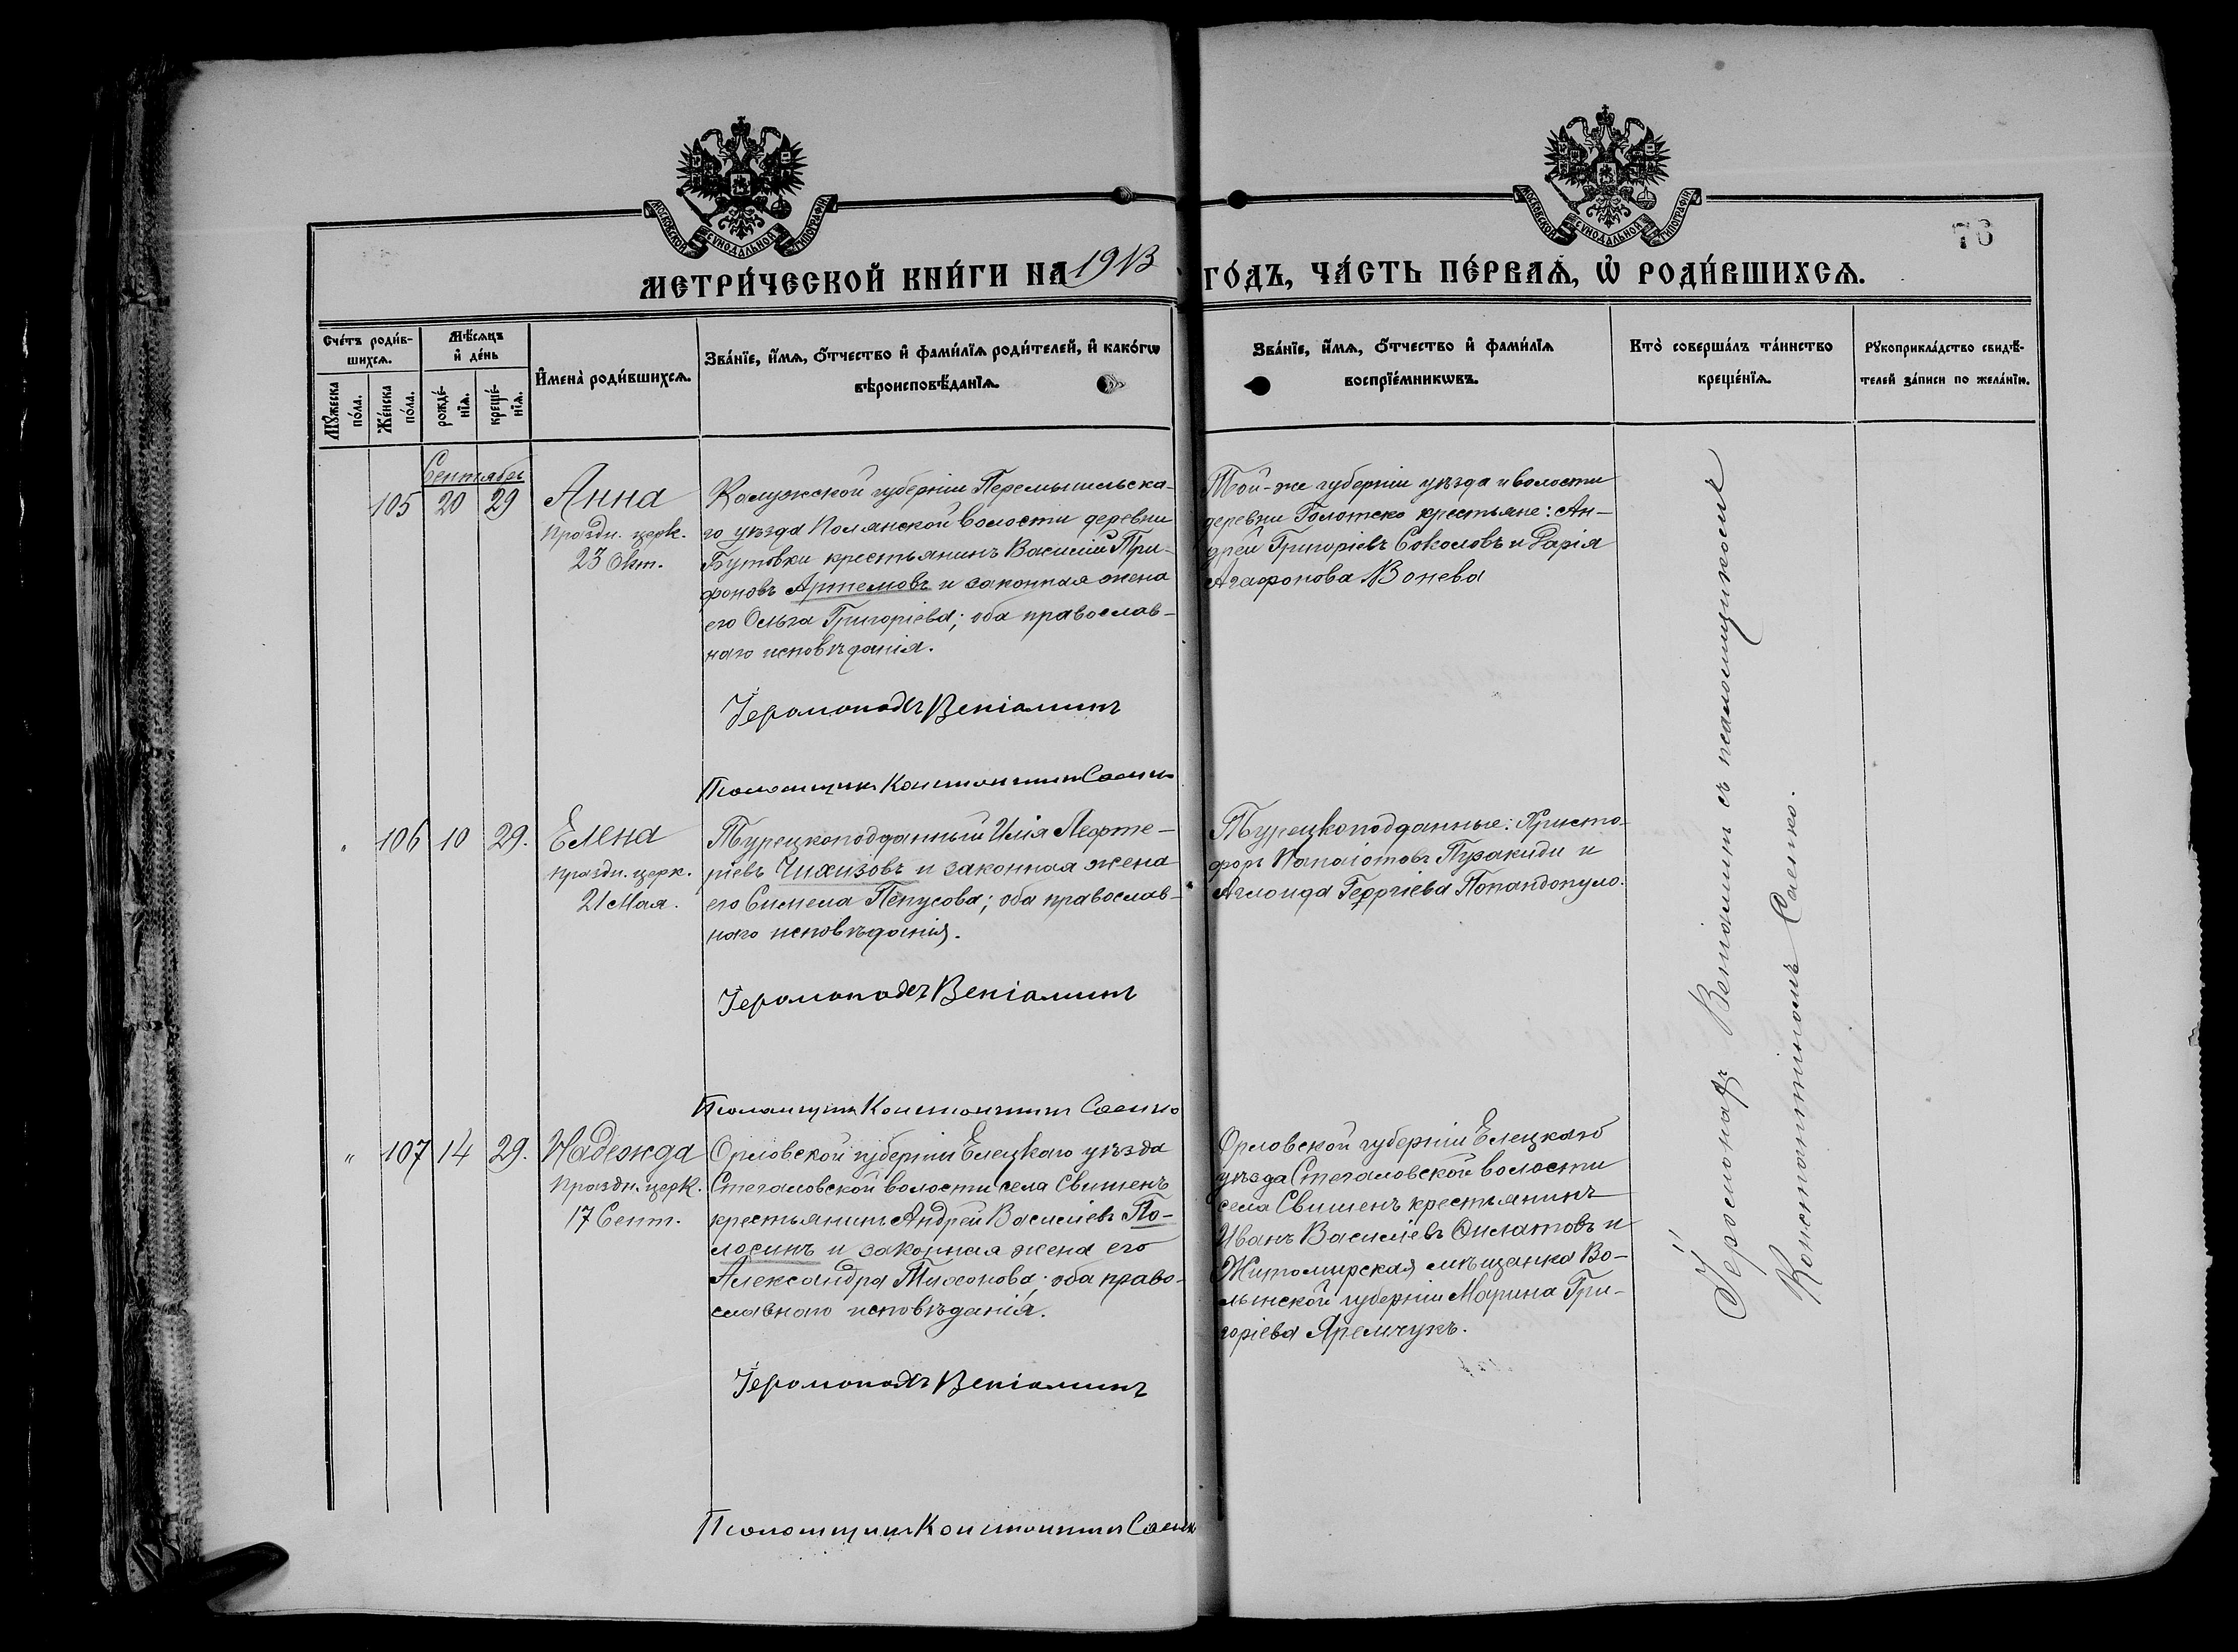 МОСКОВСКОЙ СУНОДАЛЬНОЙ ТИПОГРАФІИ
МОСКОВСКОЙ СУНОДАЛЬНОЙ ТИПОГРАФІИ
76
МЕТРИ́ЧЕСКОЙ КНИ́ГИ НА 1913 ГО́ДЪ, ЧА́СТЬ ПЕ́РВАѦ, Ѡ҆ РОДИ́ВШИХСѦ.
Сче́тъ роди́в-
шихсѧ.
Мѣ́сѧцъ
и҆ де́нь
Мꙋ́жеска
по́ла.
Же́нска
по́ла.
рожде́-
нїѧ.
креще́-
нїѧ.
И҆мена̀ роди́вшихсѧ.
Зва́нїе, и҆́мѧ, ѻ҆́тчество и҆ фами́лїѧ роди́телей, и҆ како́гѡ
вѣроисповѣ́данїѧ.
Зва́нїе, и҆́мѧ, ѻ҆́тчество и҆ фами́лїѧ
воспрїе́мникѡвъ.
Кто̀ соверша́лъ та́инство
креще́нїѧ.
Рꙋкоприкла́дство свидѣ́-
телей за́писи по жела́нїю.
Сентябрь
105 20 29 Анна
праздн. церк.
23 Окт.
Калужской губерніи Перемышльска-
го уѣзда Полянской волости деревни
Бутовки крестьянинъ Василій Три-
фоновъ Артемовъ и законная жена
его Ольга Григоріева; оба православ-
наго исповѣданія.
Іеромонахъ Веніаминъ
Псаломщикъ Константинъ Саенко
Той-же губерніи уѣзда и волости
деревни Голотско крестьяне: Ан-
дрей Григоріевъ Соколовъ и Дарія
Агафонова Вонева
" 106 10 29. Елена
праздн. церк.
21 Мая.
Турецкоподданный Илія Лефте-
ріевъ Чихизовъ и законная жена
его Симела Пепусова; оба православ-
наго исповѣданія.
Іеромонахъ Веніаминъ
Псаломщикъ Константинъ Саенко
Турецкоподданные: Христо-
форъ Панаіотовъ Пузакиди и
Аглоида Георгіева Попандопуло.
" 107 14 29. Надежда
праздн. церк.
17 Сент.
Орловской губерніи Елецкаго уѣзда
Стегаловской волости села Свишенъ
крестьянинъ Андрей Василіевъ По-
лосинъ и законная жена его
Александра Тихонова; оба право-
славнаго исповѣданія.
Іеромонахъ Веніаминъ
Псаломщикъ Константинъ Саенко
Орловской губерніи Елецкаго
уѣзда Стегаловской волости
села Свишенъ крестьянинъ
Иванъ Василіевъ и
Житомирская мѣщанка Во-
лынской губерніи Марина Гри-
горіева Яремчукъ.
Іеромонахъ Веніаминъ съ псаломщикомъ
Константиномъ Саенко.